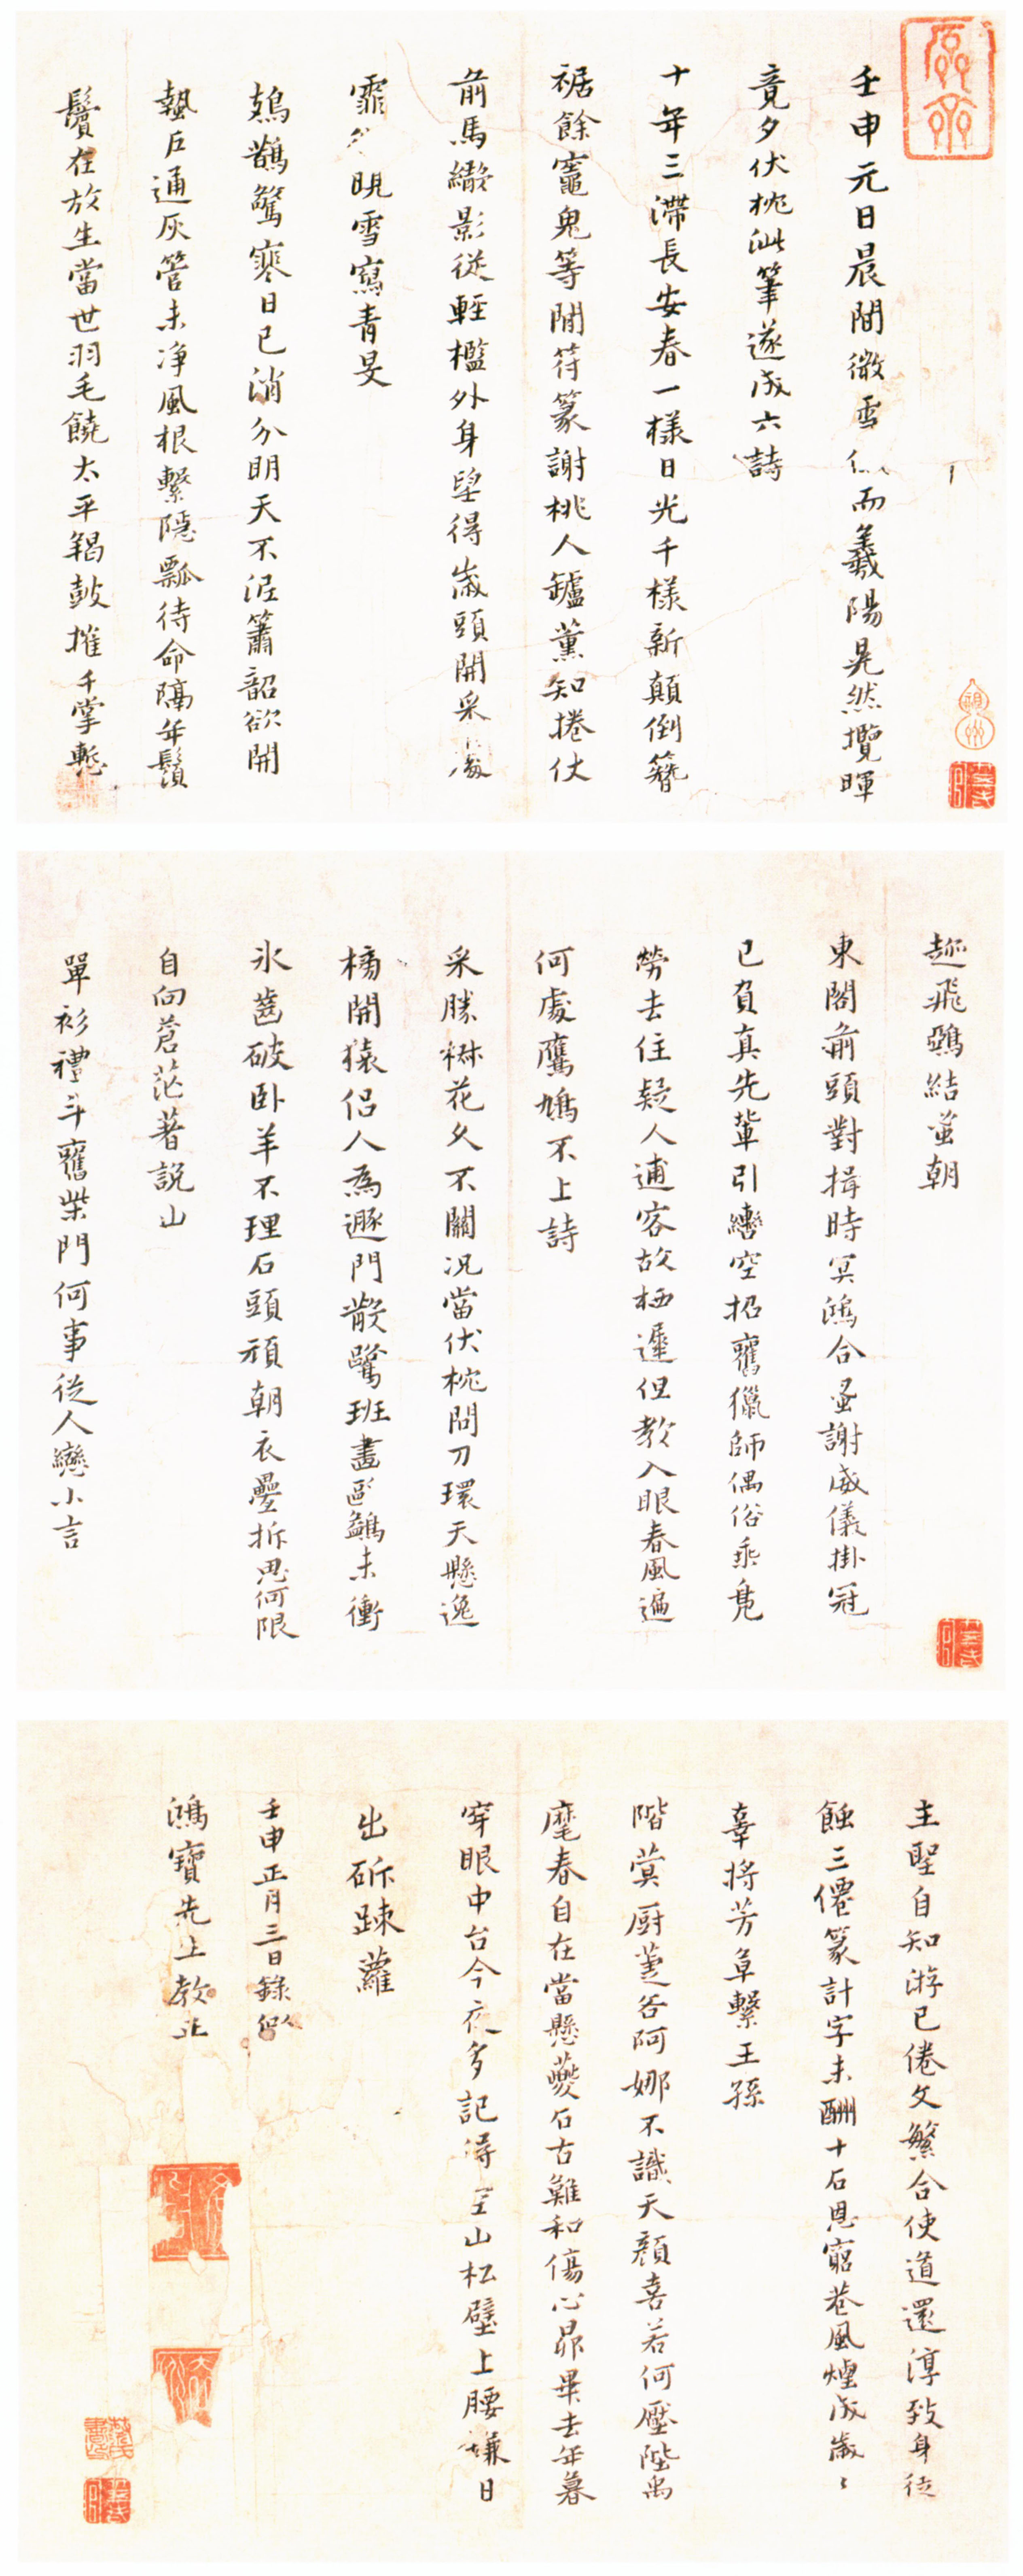 壬申元日晨間微雪似而羲陽晃然攬暉
竟夕伏枕泚筆遂成六詩
十年三滯長安春一樣日光千樣新顛倒簪
裾餘竈鬼等閒符篆謝桃人罏薰知捲仗
前馬繖影從輕檻外身望得歲頭開采
霏 晛雪寫青旻
鳷鵲驚寒日已消分明天不泥簫韶欲開
蟄戶通灰管未淨風根繫隱瓢待命隔年鬚
鬢在放生當世羽毛饒太平羯鼓摧千掌慙
趂飛鴉結蚤朝
東閣前頭對揖時冥鴻合蚤謝威儀掛冠
已負真先輩引轡空招舊獵師偶俗乘鳧
勞去住疑人逋客故栖遲但教入眼春風遍
何處鷹鳩不上詩
采勝楙花久不關況當伏枕問刀環天懸逸
樆開猿侶人為遯門散鷺班畫 鷁未衝
氷齒破臥羊不理石頭頑朝衣疊拆思何限
自向蒼茫著說山
單衫禮斗舊柴門何事從人戀小言
主聖自知游已倦文繁合使道還淳致身徒
蝕三僊篆計字未酬十石恩窮巷風煙成歲〻
辜將芳草繫王孫
階蓂廚萐各阿娜不識天顏喜若何壓陛禺
麾春自在當懸夔石古難和傷心昴畢去年暮
穿眼中台今夜多記得 山松壁上腰鎌日
出斫疎蘿
壬申正月三日錄似
鴻寶先生教正